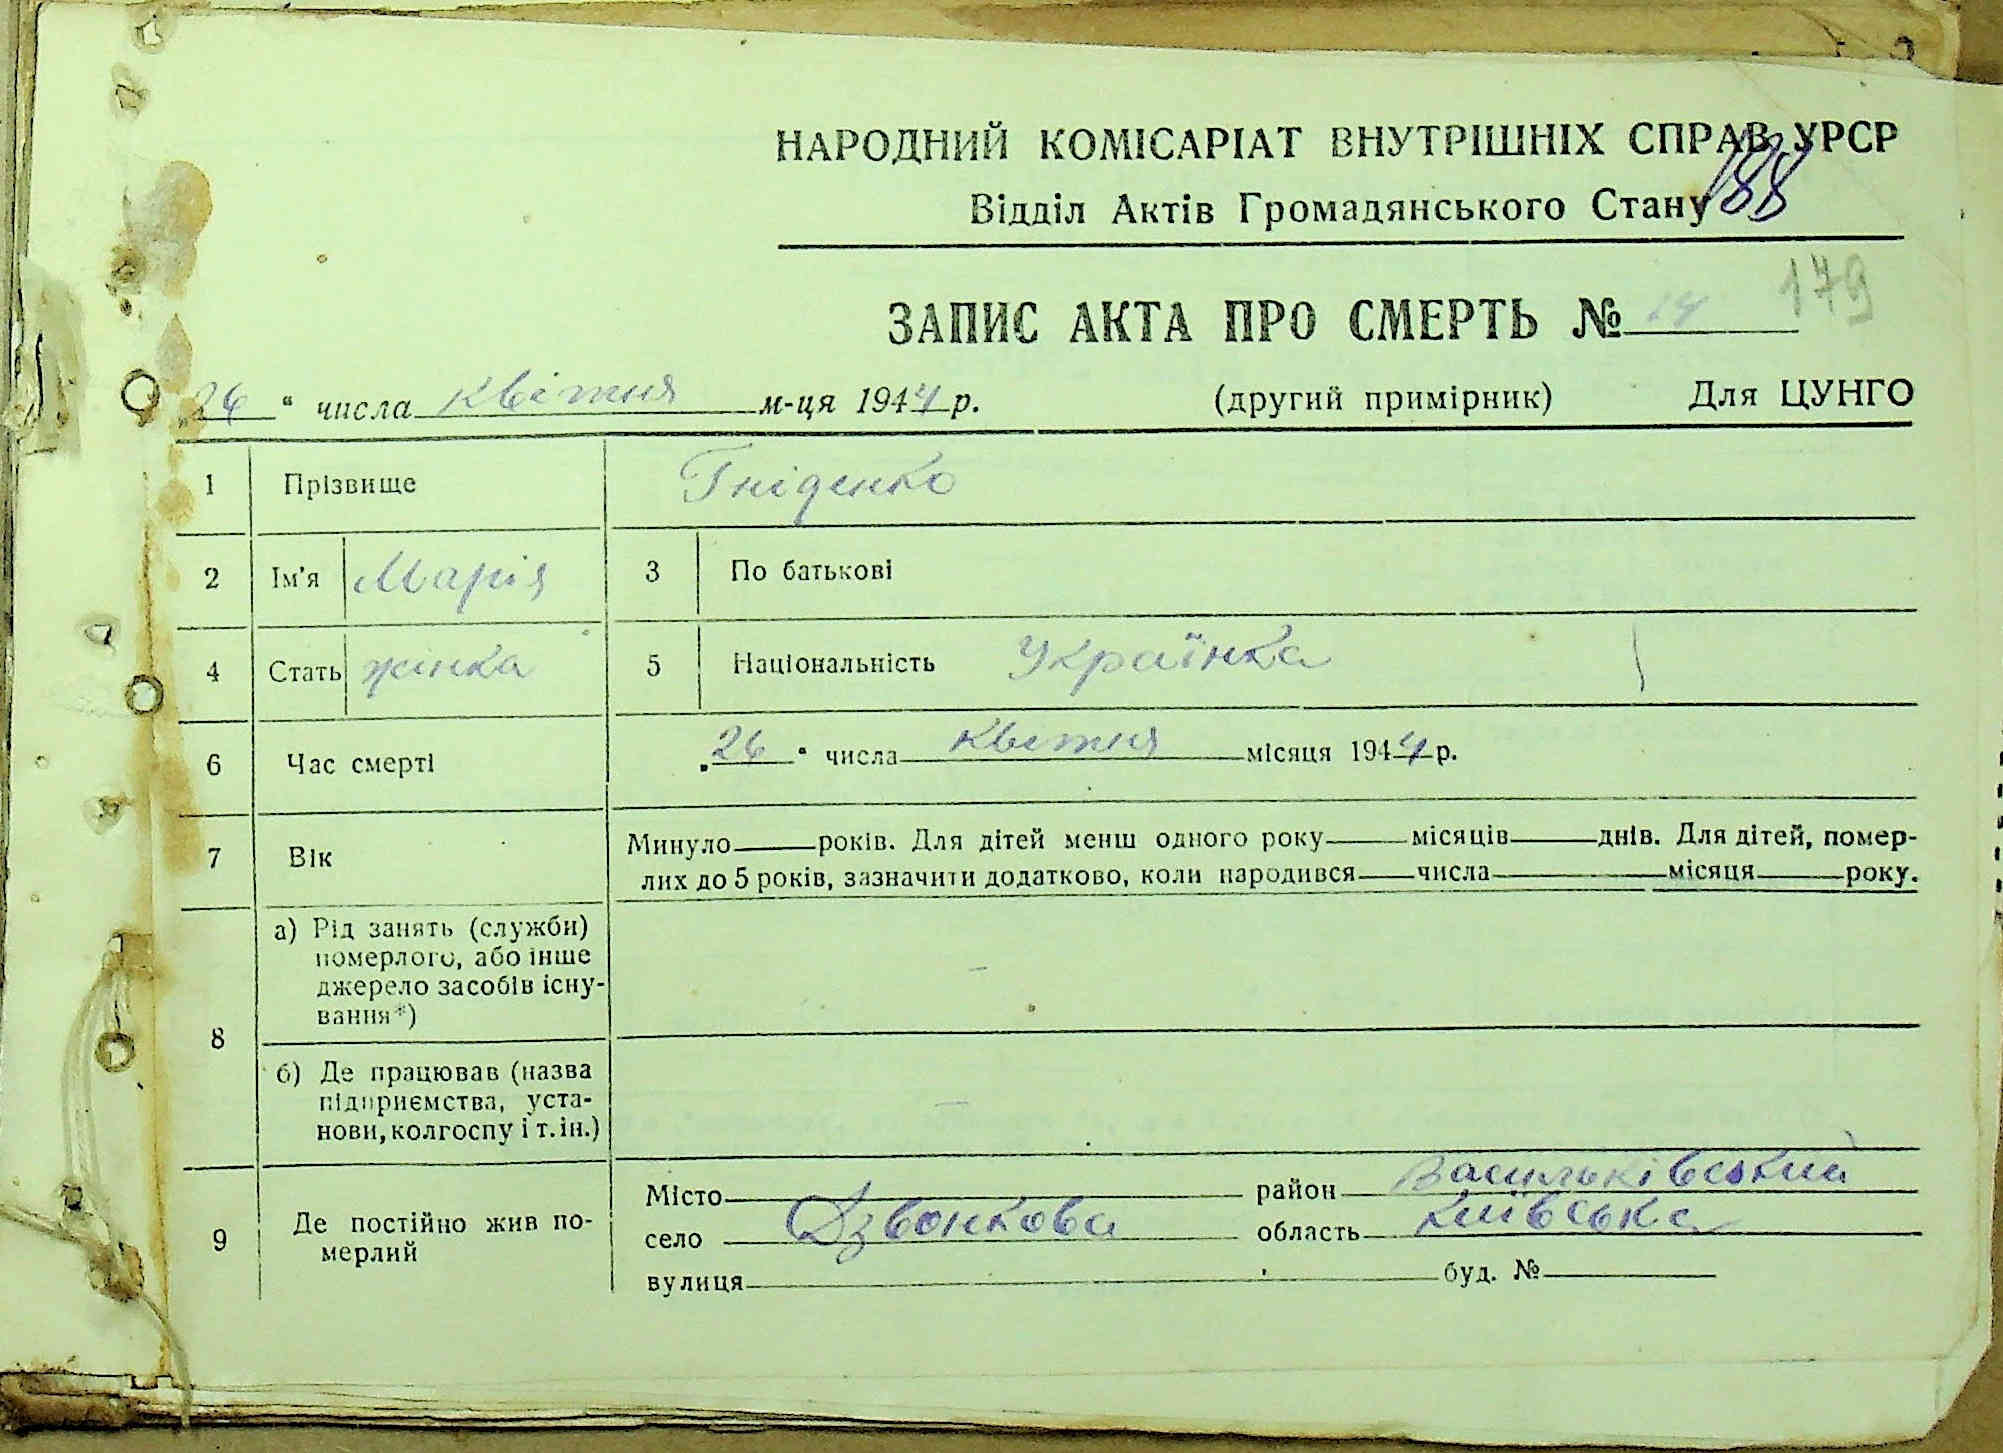 НАРОДНИЙ КОМІСАРІАТ ВНУТРІШНІХ СПРАВ УРСР
Відділ Актів Громадянського Стану 188
ЗАПИС АКТА ПРО СМЕРТЬ № 14 179
„26“ числа квітня м-ця 1944 р. (другий примірник) Для ЦУНГО
1 Прізвище Гніденко
2 Ім'я Марія 3 По батькові
4 Стать жінка 5 Національність Українка
6 Час смерті „26“ числа квітня місяця 1944 р.
7 Вік Минуло років. Для дітей менш одного року місяців днів. Для дітей, помер-
лих до 5 років, зазначити додатково, коли народився числа місяця року.
8 а) Рід занять (служби)
померлого, або інше
джерело засобів існу-
вання*)
–
б) Де працював (назва
підприємства, уста-
нови, колгоспу і т. ін.)
–
9 Де постійно жив по-
мерлий
Місто район Васильківський
село Дзвонкова область Київська
вулиця буд. №